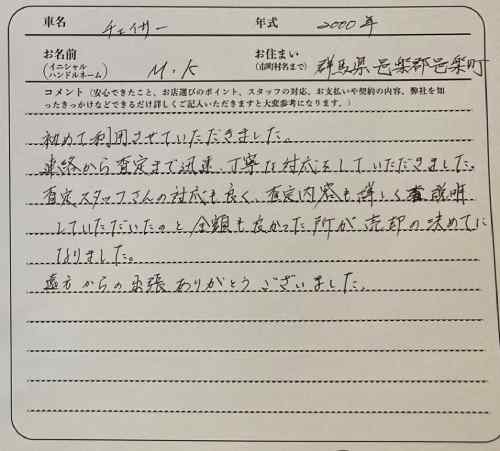 車名 チェイサー 年式 2000年
お名前 (イニシャル ハンドルネーム) M.K お住まい (市町村名まで) 群馬県邑楽郡邑楽町
コメント(安心できたこと、お店選びのポイント、スタッフの対応、お支払いや契約の内容、弊社を知
ったきっかけなどできるだけ詳しくご記入いただきますと大変参考になります。)
初めて利用させていただきました。
連絡から査定まで迅速、丁寧な対応をしていただきました。
査定スタッフさんの対応も良く、査定内容も詳しく説明
していただいたのと金額も良かった所が売却の決めてに
なりました。
遠方からの出張ありがとうございました。